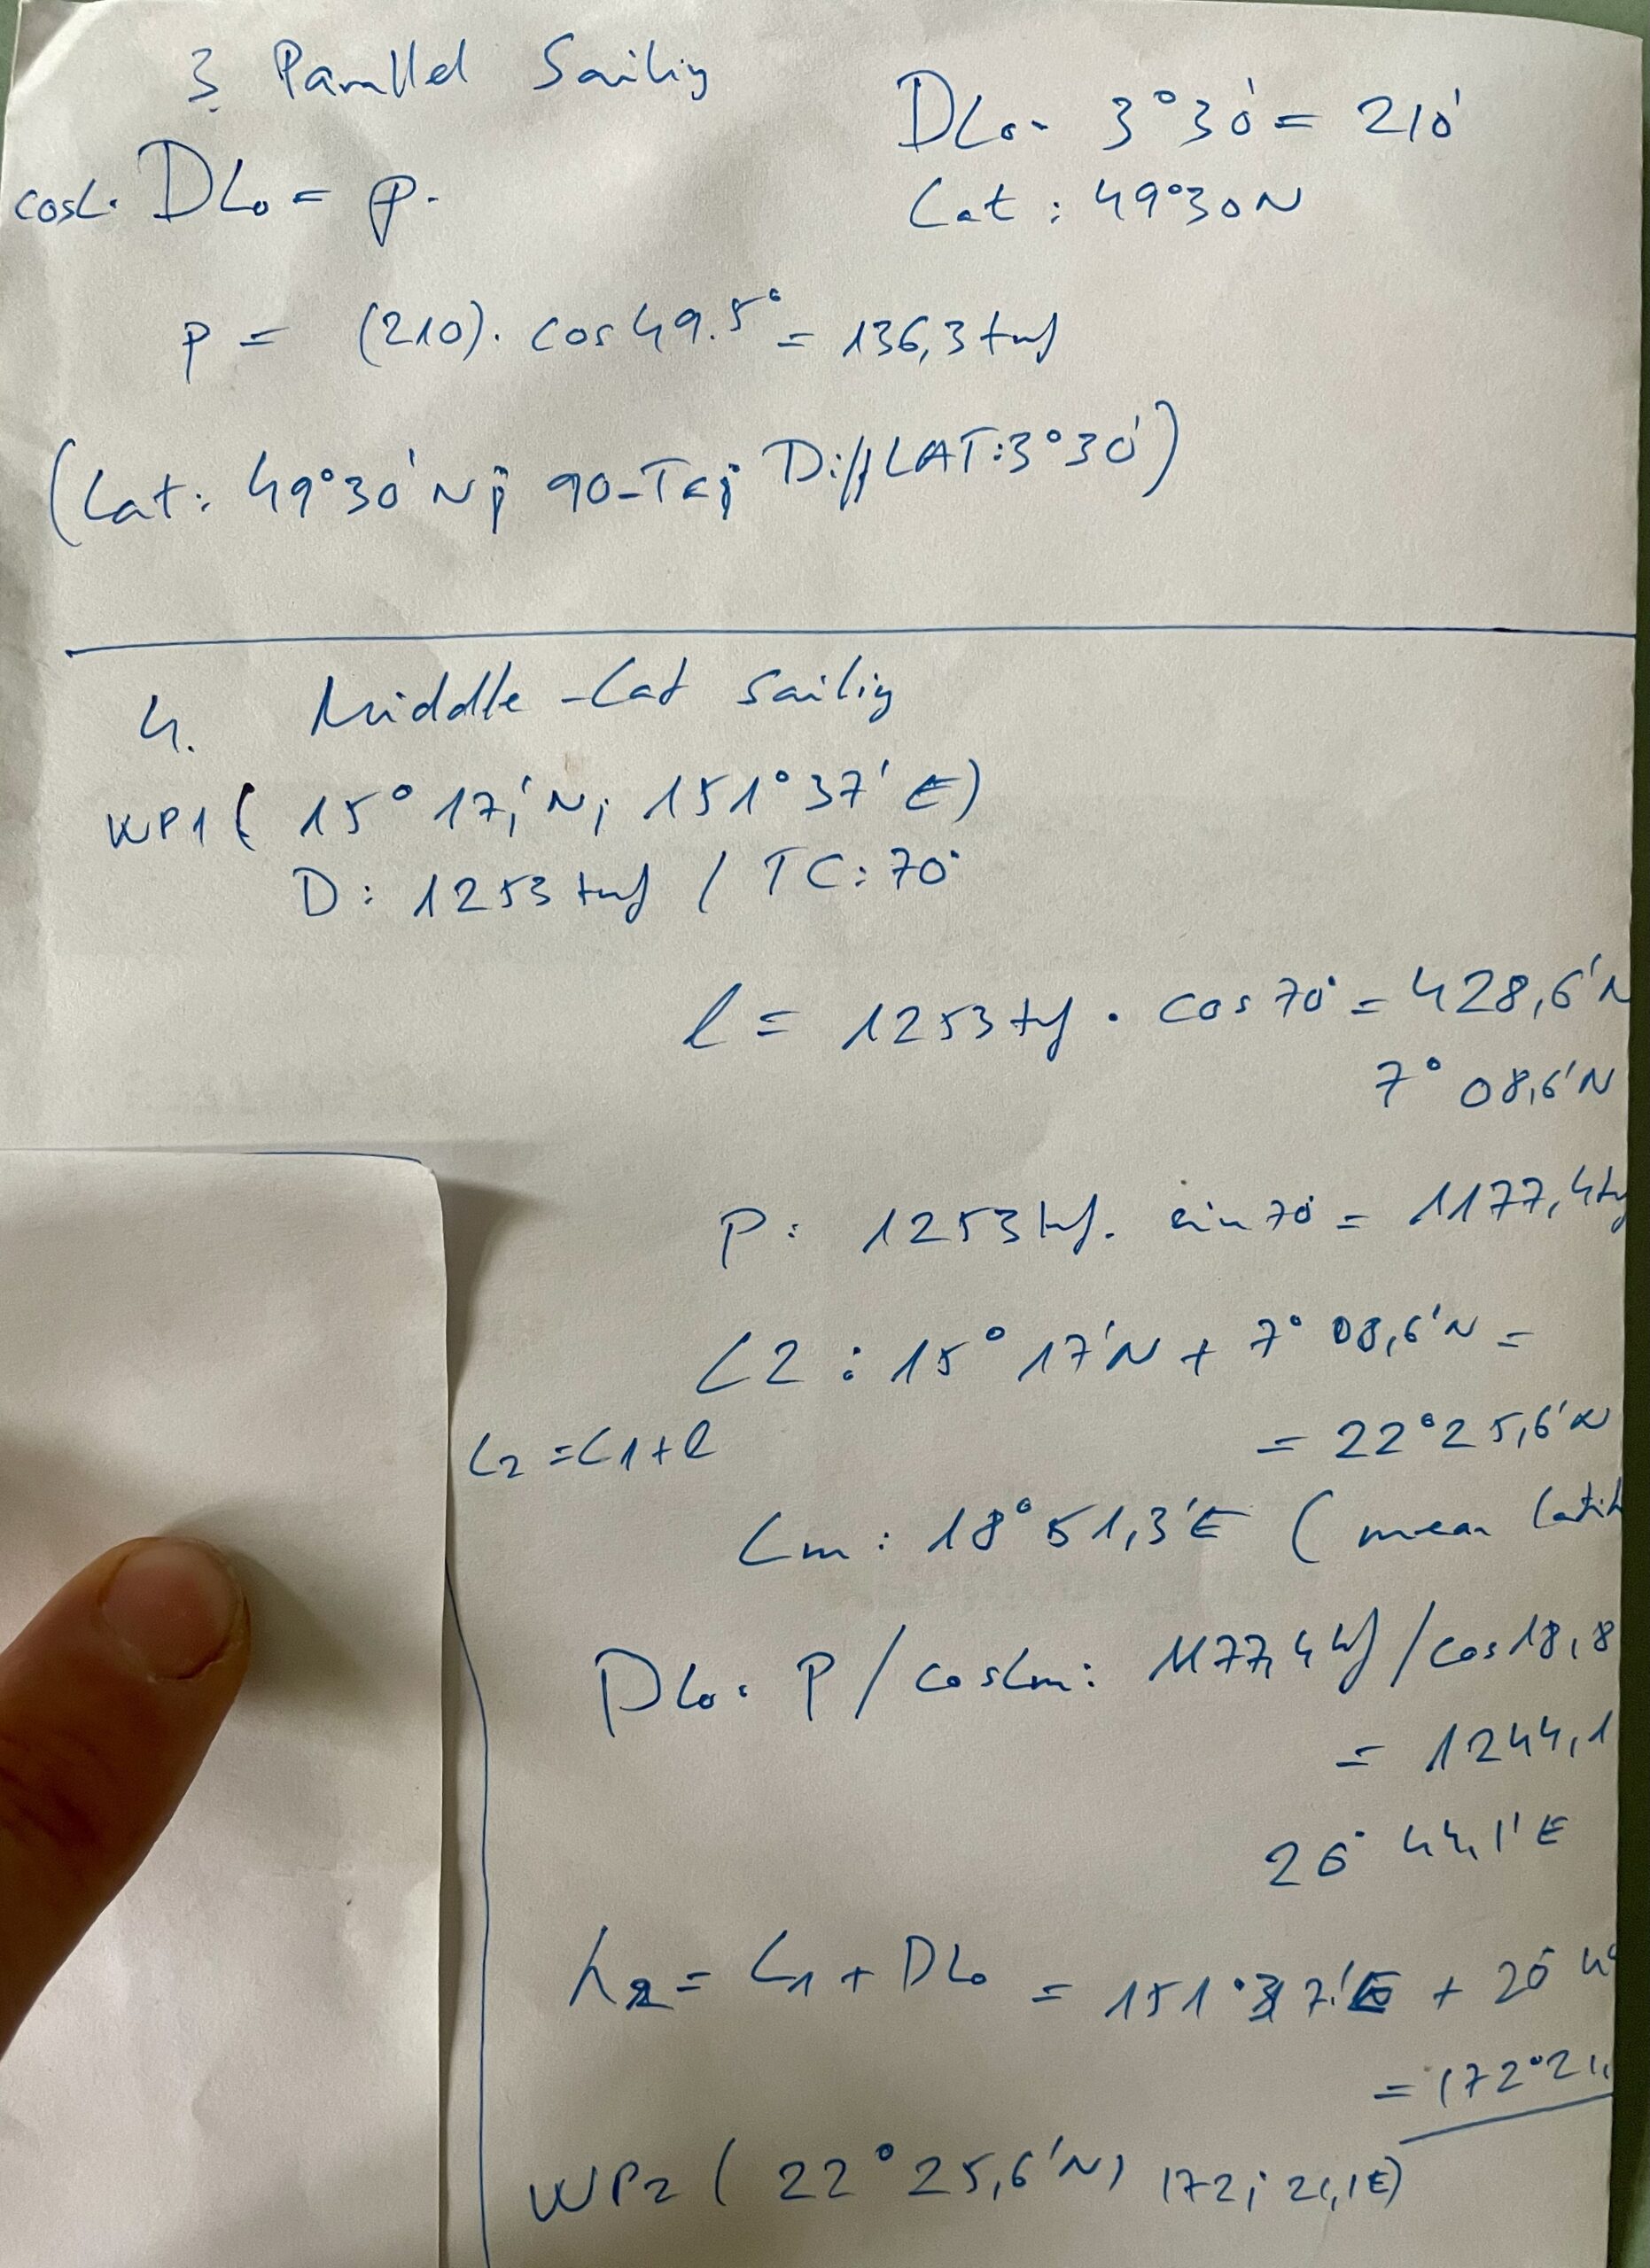 3 Parallel Sailing
DLo = 3°30' = 210'
Lat: 49°30N
cosL. DLo = p.
p = (210). cos 49.5° = 136,3 tmf
(Lat: 49°30'N; 90-Tc; Diff LAT: 3°30')
4. Middle-Lat Sailing
WP1 ( 15° 17,'N; 151° 37' E)
D: 1253 tmf / TC: 70°
l = 1253 tmf . cos 70° = 428,6'N
7° 08,6'N
P: 1253 tmf. sin 70° = 1177,4
L2 : 15° 17'N + 7° 08,6'N =
L2 = L1 + l
= 22°25,6'N
Lm: 18°51,3'E ( mean
DLo: P / cosLm: 1177,4 tmf / cos 18,8
= 1244,1
20° 44,1' E
λ2 = L1 + DLo = 151°37'E + 20°
= 172°21,
WP2 ( 22° 25,6'N) 172; 21,1E)